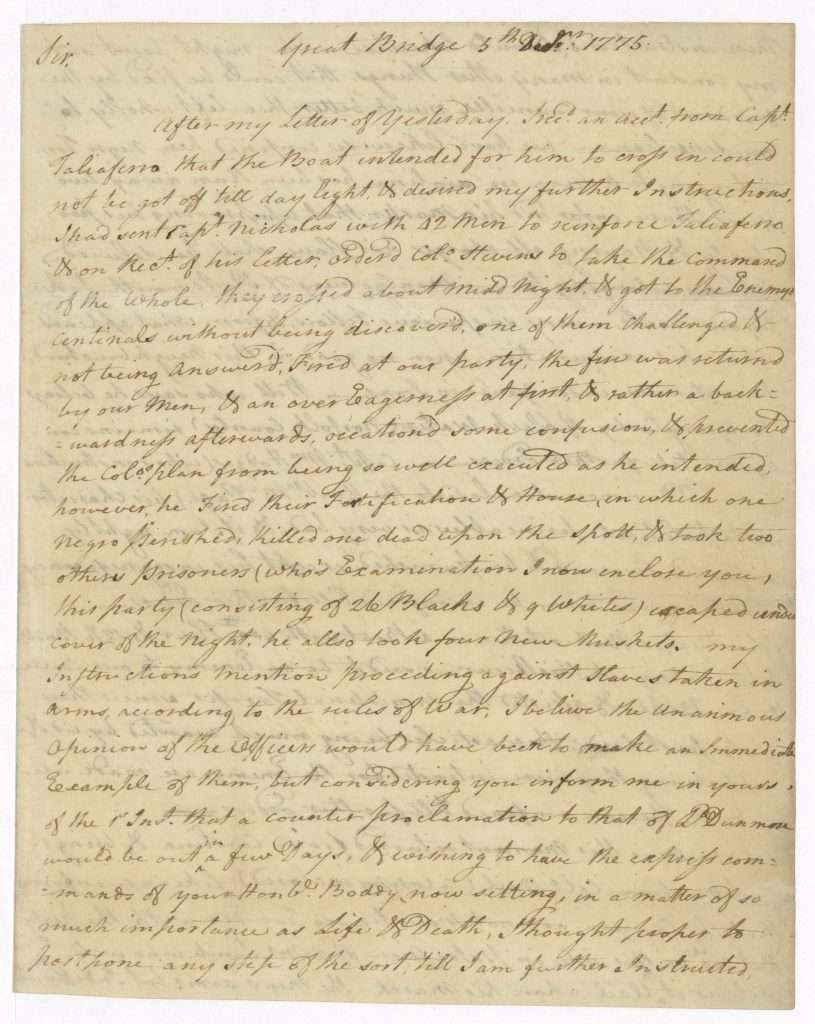 Sir. Great Bridge 5th Decr. 1775.
After my Letter of Yesterday. I recd. an acct. from Capt.
Taliaferro that the Boat intended for him to cross in could
not be got off till day light, & desired my further Instructions,
I had sent Capt. Nicholas with 42 Men to reinforce Taliaferro
& on Rect. of his letter, orderd Colo. Stevens to take the Command
of the whole. they crossed about midd Night, & got to the Enemys
Centinals without being discover'd, one of them Challenged &
not being Answerd, Fired at our party, the fire was returnd
by our Men, & an over Eagerness at first, & rather a back=
=wardness afterwards, occationd some confusion, & prevented
the Colos. plan from being so well executed as he intended,
however, he Fired their Fortification & House, in which one
negro perished, killed one dead upon the Spott, & took two
others prisoners (who's Examination I now inclose you,
this party (consisting of 26 Blacks & 9 Whites) escaped under
cover of the Night. he allso took four New Muskets. my
Instructions mention proceding against Slaves taken in
arms, according to the rules of War, I belive the Unanimous
opinion of the Officers would have been to make an Immediate
Example of them, but considering you inform me in yours
of the 1st Inst. that a counter proclamation to that of Ld. Dunmore
would be out in a few Days, & wishing to have the express com=
=mands of your Honble. Boddy now setting, in a matter of so
much importance as Life & Death, I thought proper to
postpone any step of the sort, till I am further Instructed,